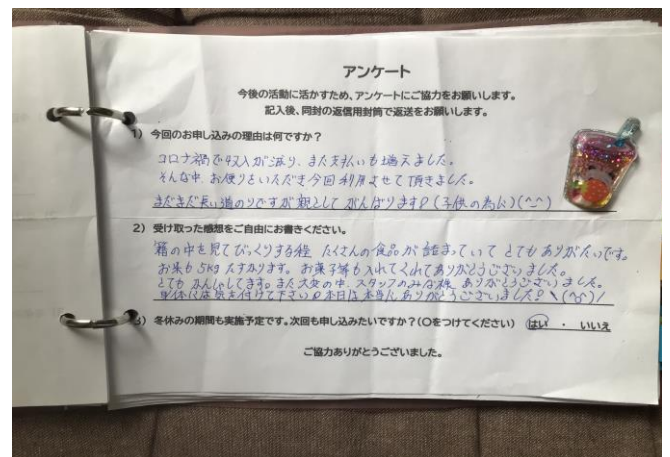 アンケート
今後の活動に活かすため、アンケートにご協力をお願いします。
記入後、同封の返信用封筒で返送をお願いします。
1) 今回のお申し込みの理由は何ですか?
コロナ禍で収入が減り、また支払いも増えました。
そんな中、お便りをいただき今回利用させて頂きました。
まだまだ長い道のりですが親としてがんばります!(子供の為に)(^-^)
2) 受け取った感想をご自由にお書きください。
箱の中を見てびっくりする程 たくさんの食品が詰まっていて とてもありがたいです。
お米も5kg たすかります。お菓子等も入れてくれてありがとうございました。
とても かんしゃしてます。また大変の中、スタッフのみな様 ありがとうございました。
お体には気を付けて下さい!本日は本当にありがとうございました!\(^o^)/
3) 冬休みの期間も実施予定です。次回も申し込みたいですか?(〇をつけてください) はい ・ いいえ
ご協力ありがとうございました。